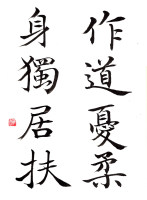 作道憂柔
身獨居扶